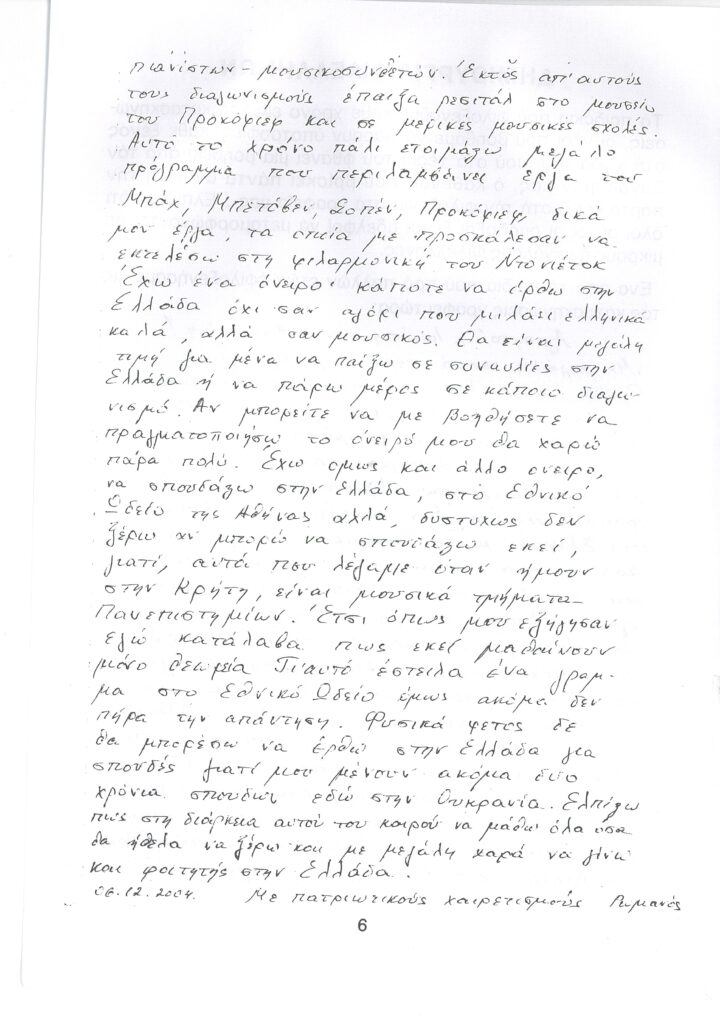 πιανίστων - μουσικοσυνθετών. Έκτος απ' αυτούς
τους διαγωνισμούς έπαιξα ρεσιτάλ στο μουσείο
του Προκόφιεφ και σε μερικές μουσικές σχολές.
Αυτό το χρόνο πάλι ετοιμάζω μεγάλο
πρόγραμμα που περιλαμβάνει έργα του
Μπάχ, Μπετόβεν, Σοπέν, Προκόφιεφ, δικά
μου έργα, τα οποία με προσκάλεσαν να
εκτελέσω στη φιλαρμονική του Ντονιέτσκ
Έχω ένα όνειρο· κάποτε να έρθω στην
Ελλάδα όχι σαν αγόρι που μιλάει ελληνικά
καλά, αλλά σαν μουσικός. Θα είναι μεγάλη
τιμή για μένα να παίξω σε συναυλίες στην
Ελλάδα ή να πάρω μέρος σε κάποιο διαγω-
νισμό. Αν μπορείτε να με βοηθήσετε να
πραγματοποιήσω το όνειρό μου θα χαρώ
πάρα πολύ. Έχω όμως και άλλο όνειρο,
να σπουδάζω στην Ελλάδα, στο Εθνικό
Ωδείο της Αθήνας αλλά, δυστυχώς δεν
ξέρω αν μπορώ να σπουδάζω εκεί,
γιατί, αυτά που λέγαμε όταν ήμουν
στην Κρήτη, είναι μουσικά τμήματα
Πανεπιστημίων. Έτσι όπως μου εξήγησαν
εγώ κατάλαβα πως εκεί μαθαίνουν
μόνο θεωρεία Γι'αυτό έστειλα ένα γραμ-
μα στο Εθνικό Ωδείο όμως ακόμα δεν
πήρα την απάντηση. Φυσικά φετος δε
θα μπορέσω να έρθω στην Ελλάδα για
σπουδές γιατί μου μένουν ακόμα δύο
χρόνια σπουδών εδώ στην Ουκρανία. Ελπίζω
πως στη διάρκεια αυτού του καιρού να μάθω όλα όσα
θα ήθελα να ξέρω και με μεγάλη χαρά να γίνω
και φοιτητής στην Ελλάδα.
06.12.2004. Με πατριωτικούς χαιρετισμούς Ρωμανός
6